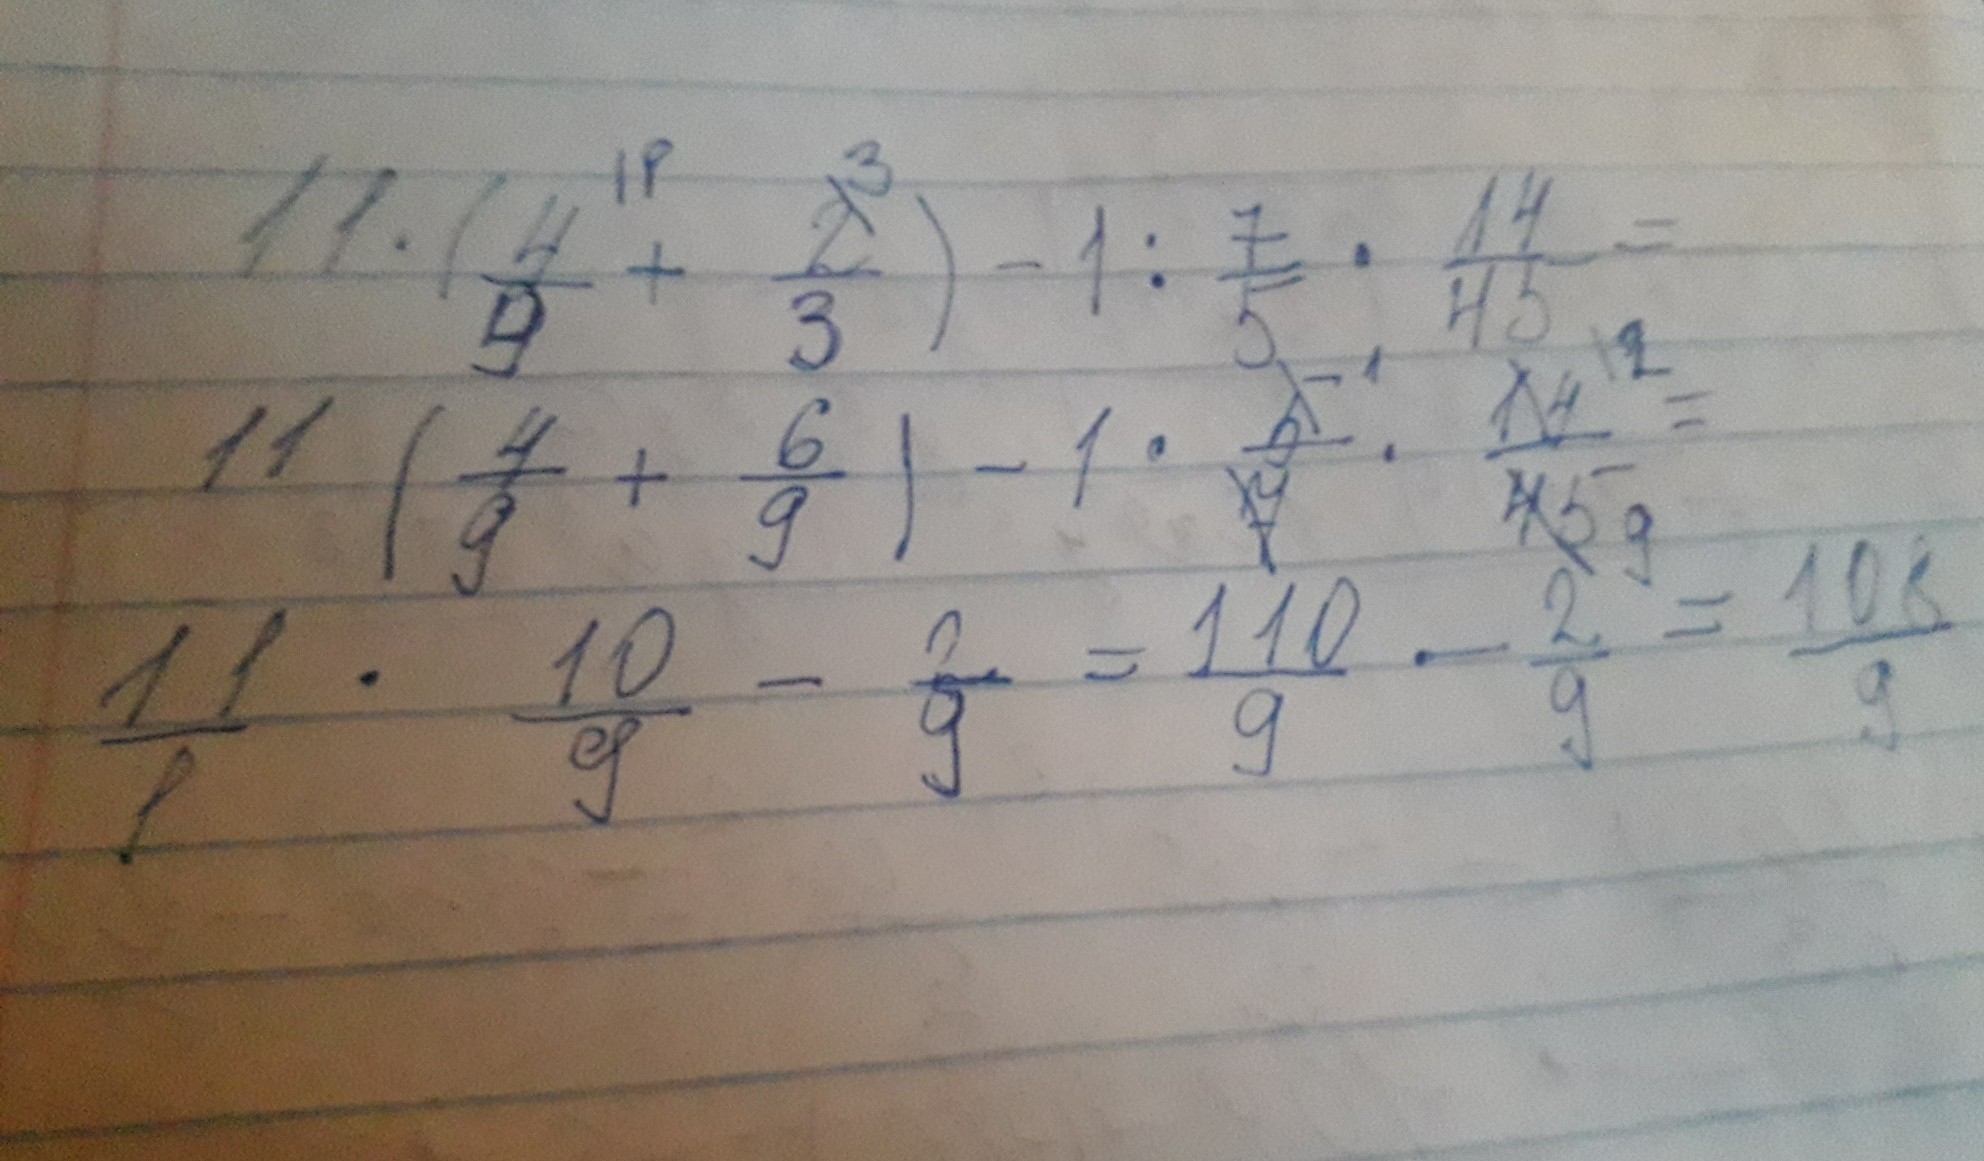 11 · (4/9 \1 + 2/3 \3) - 1 : 7/5 · 14/45 =
11 (4/9 + 6/9) - 1 · 5/7 1 · 14/45 \2 9 =
11/1 · 10/9 - 2/9 = 110/9 - 2/9 = 108/9